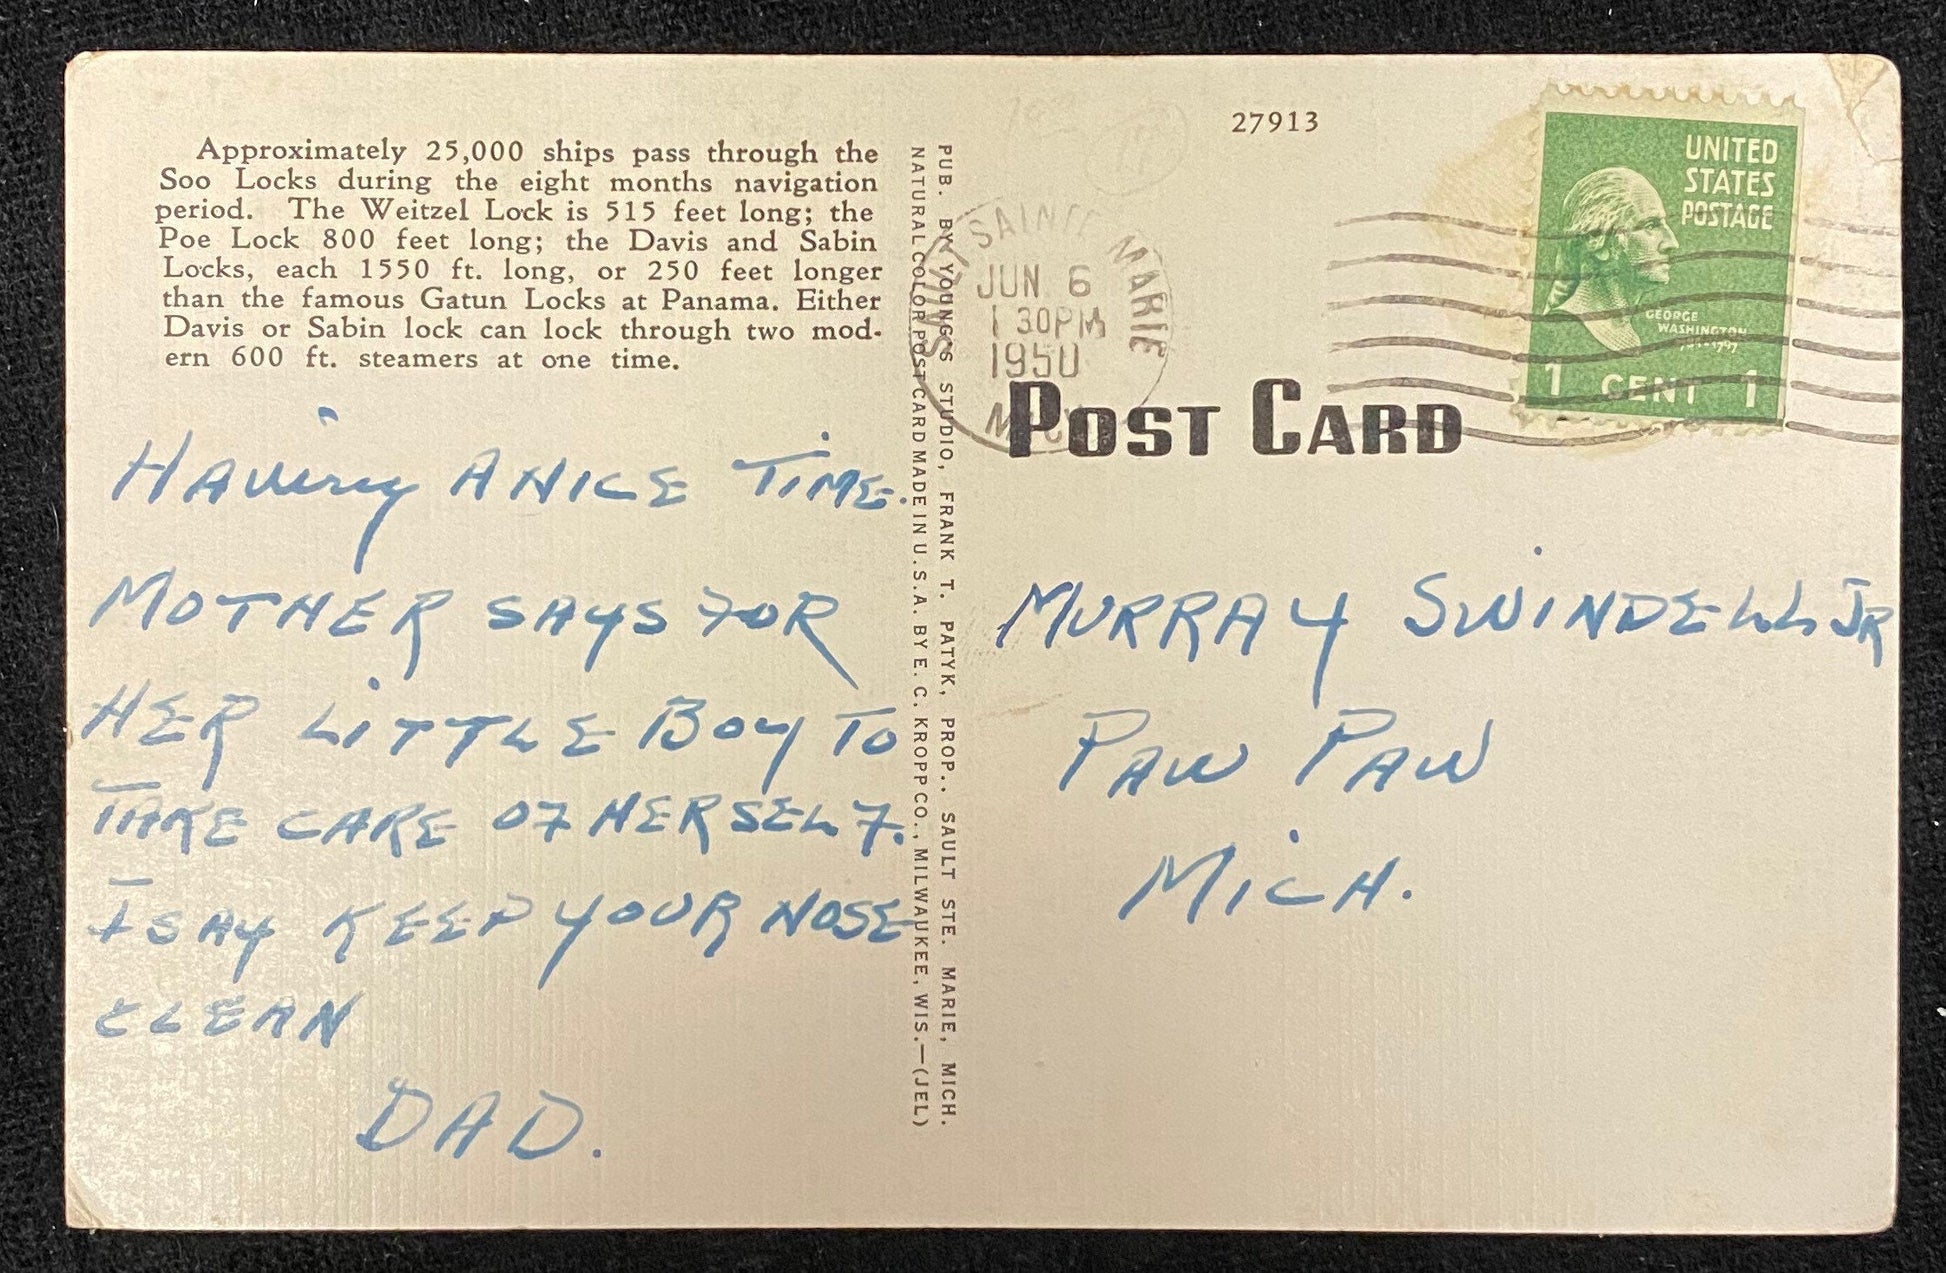 Approximately 25,000 ships pass through the
Soo Locks during the eight months navigation
period. The Weitzel Lock is 515 feet long; the
Poe Lock 800 feet long; the Davis and Sabin
Locks, each 1550 ft. long, or 250 feet longer
than the famous Gatun Locks at Panama. Either
Davis or Sabin lock can lock through two mod-
ern 600 ft. steamers at one time.
HAVING A NICE TIME.
MOTHER SAYS FOR
HER LITTLE BOY TO
TAKE CARE OF HERSELF.
I SAY KEEP YOUR NOSE
CLEAN
DAD.
PUB. BY YOUNG'S STUDIO, FRANK T. PATYK, PROP., SAULT STE. MARIE, MICH.
NATURAL COLOR POST CARD MADE IN U.S.A. BY E. C. KROPP CO., MILWAUKEE, WIS.—(JEL)
27913
SAULT SAINTE MARIE
JUN 6
1 30PM
1950
MICH
UNITED
STATES
POSTAGE
GEORGE
WASHINGTON
1 CENT 1
POST CARD
MURRAY SWINDELL JR
PAW PAW
MICH.